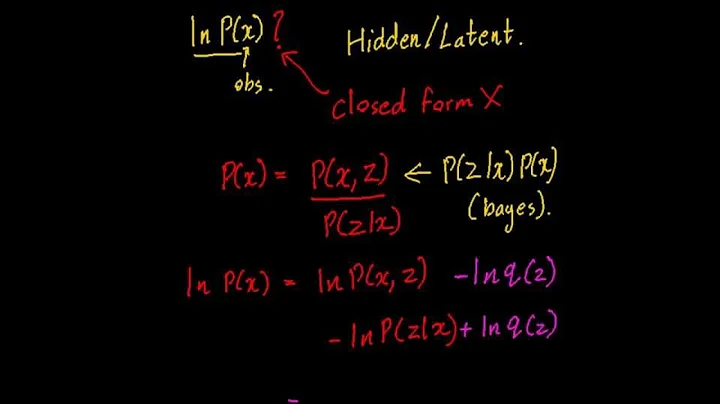 ln P(x) ? Hidden/Latent.
obs.
closed form X
P(x) = P(x, z) ← P(z|x) P(x)
P(z|x) (bayes).
ln P(x) = ln P(x, z) - ln q(z)
- ln P(z|x) + ln q(z)
=